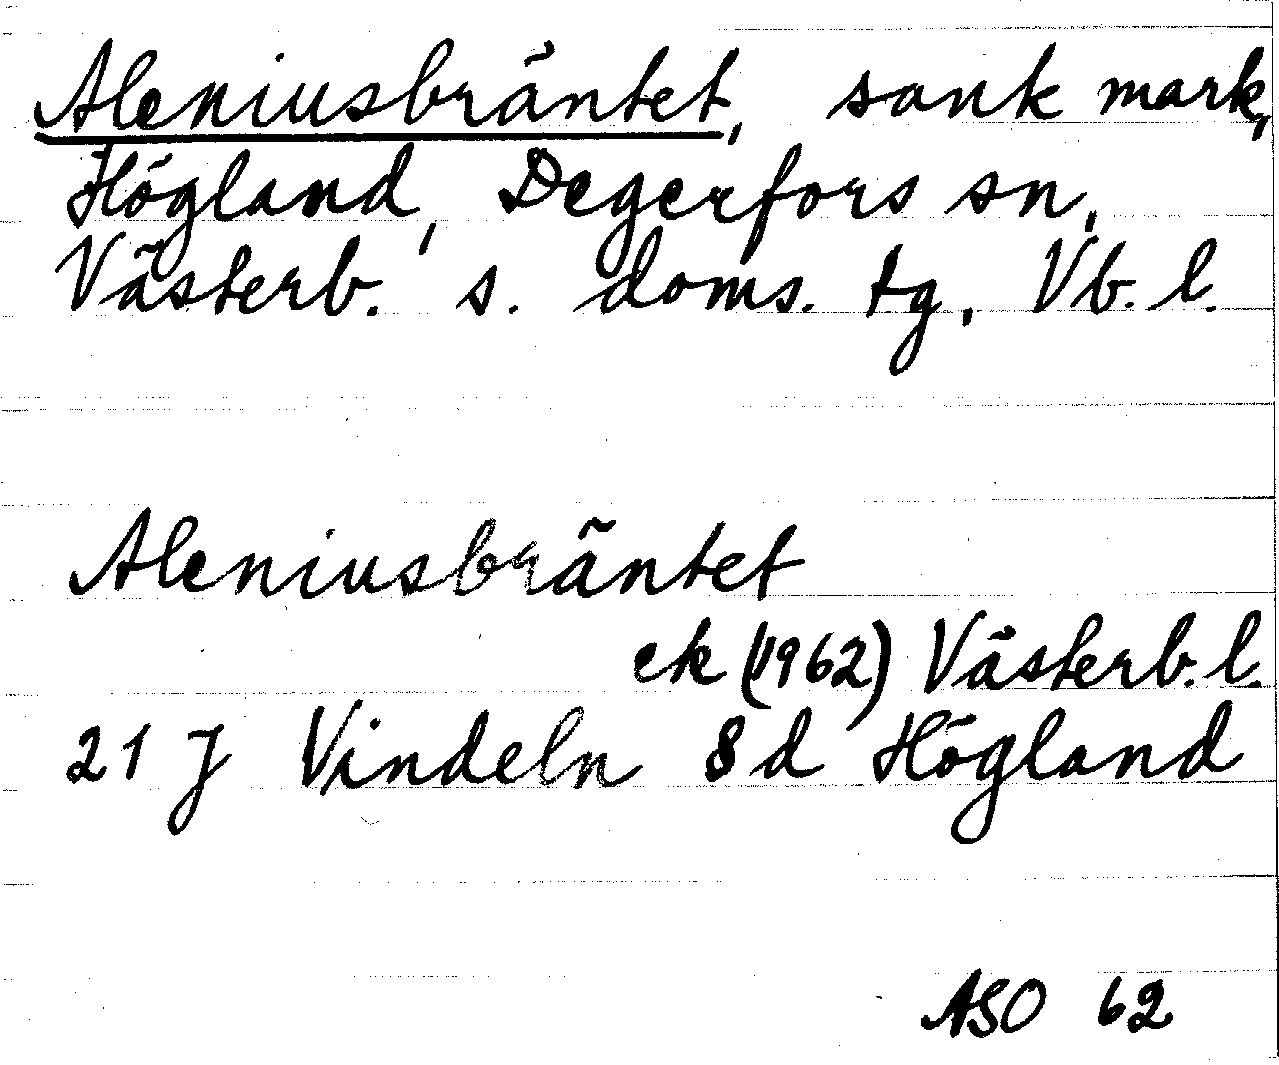 Aleniusbräntet, sank mark,
Högland, Degerfors sn,
Västerb. s. doms. tg, Vb. l.
Aleniusbräntet
ek (1962) Västerb. l.
21 J Vindeln 8d Högland
ASO 62